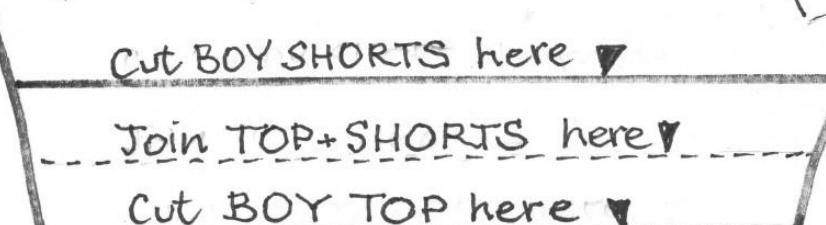 Cut BOY SHORTS here
Join TOP+SHORTS here
Cut BOY TOP here